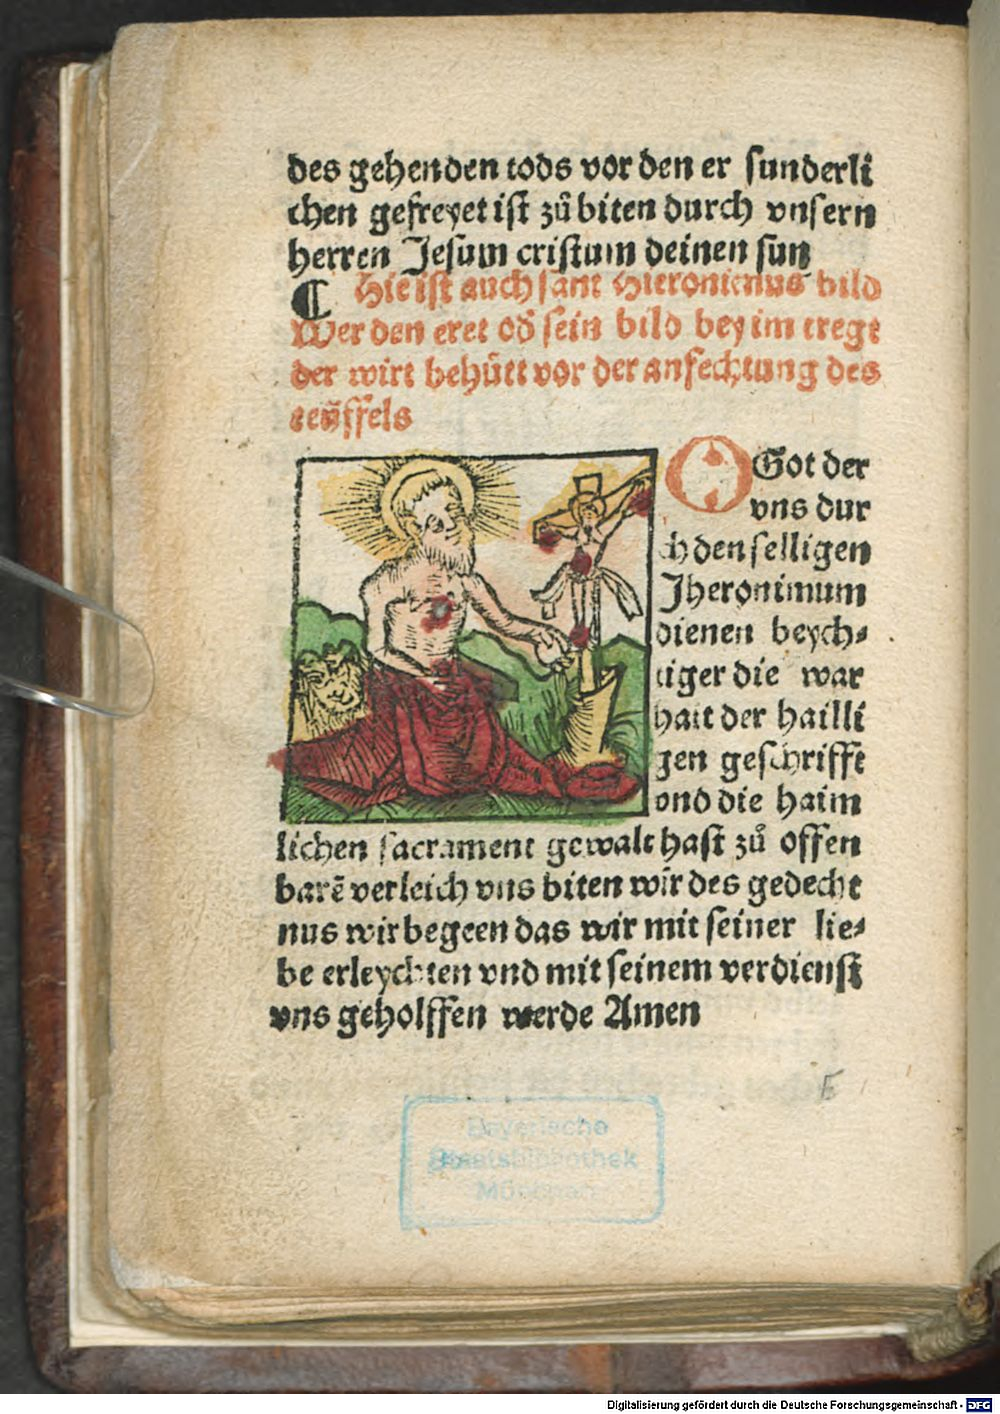 des gehenden tods vor den er sunderli
chen gefreyet ist zů biten durch vnsern
herren Jesum cristum deinen sun
¶ Hie ist auch sant Hieronimus bild
Wer den eret od̄ sein bild bey im tregt
der wirt behütt vor der anfechtung des
teÿffels
O Got der
vns dur
ch den selligen
Jheronimum
dienen beych⸗
tiger die war
hait der hailli
gen geschrifft
vnd die haim
lichen sacrament gewalt hast zů offen
barē verleich vns biten wir des gedecht
nus wir begeen das wir mit seiner lie⸗
be erleychten vnd mit seinem verdienst
vns geholffen werde Amen
Bayerische
Staatsbibliothek
München
Digitalisierung gefördert durch die Deutsche Forschungsgemeinschaft - DFG